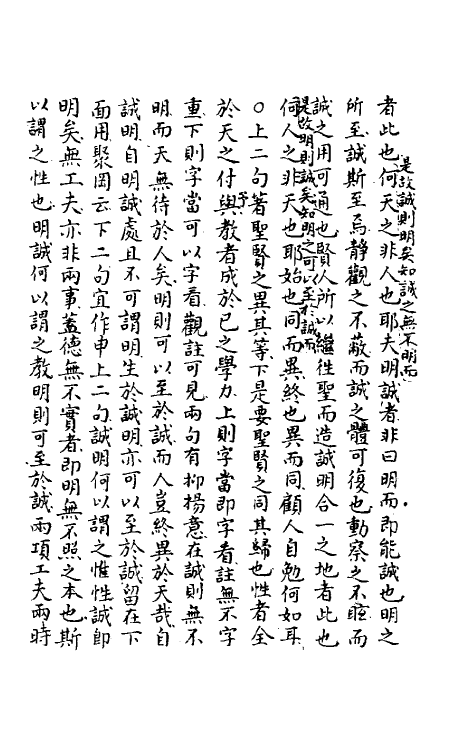 是故誠則明矣知誠之無不明而
者此也何天之非人也耶夫明誠者非曰明而即能誠也明之
所至誠斯至焉静觀之不蔽而誠之體可復也動察之不眩而
誠之用可通也賢人所以繼徃聖而造誠明合一之地者此也
是故明則誠矣知明之可以至於誠而
何人之非天也耶始也同而異終也異而同顧人自勉何如耳
○上二句著聖賢之異其等下是要聖賢之同其歸也性者全
於天之付與教者成於已之學力上則字當即字看註無不字
予
重下則字當可以字看觀註可見兩句有抑揚意在誠則無不
明而天無待於人矣明則可以至於誠而人豈終異於天哉自
誠明自明誠處且不可謂明生於誠明亦可以至於誠留在下
面用聚岡云下二句宜作申上二句誠明何以謂之惟性誠即
明矣無工夫亦非兩事蓋德無不實者即明無不照之本也斯
以謂之性也明誠何以謂之教明則可至於誠兩項工夫兩時